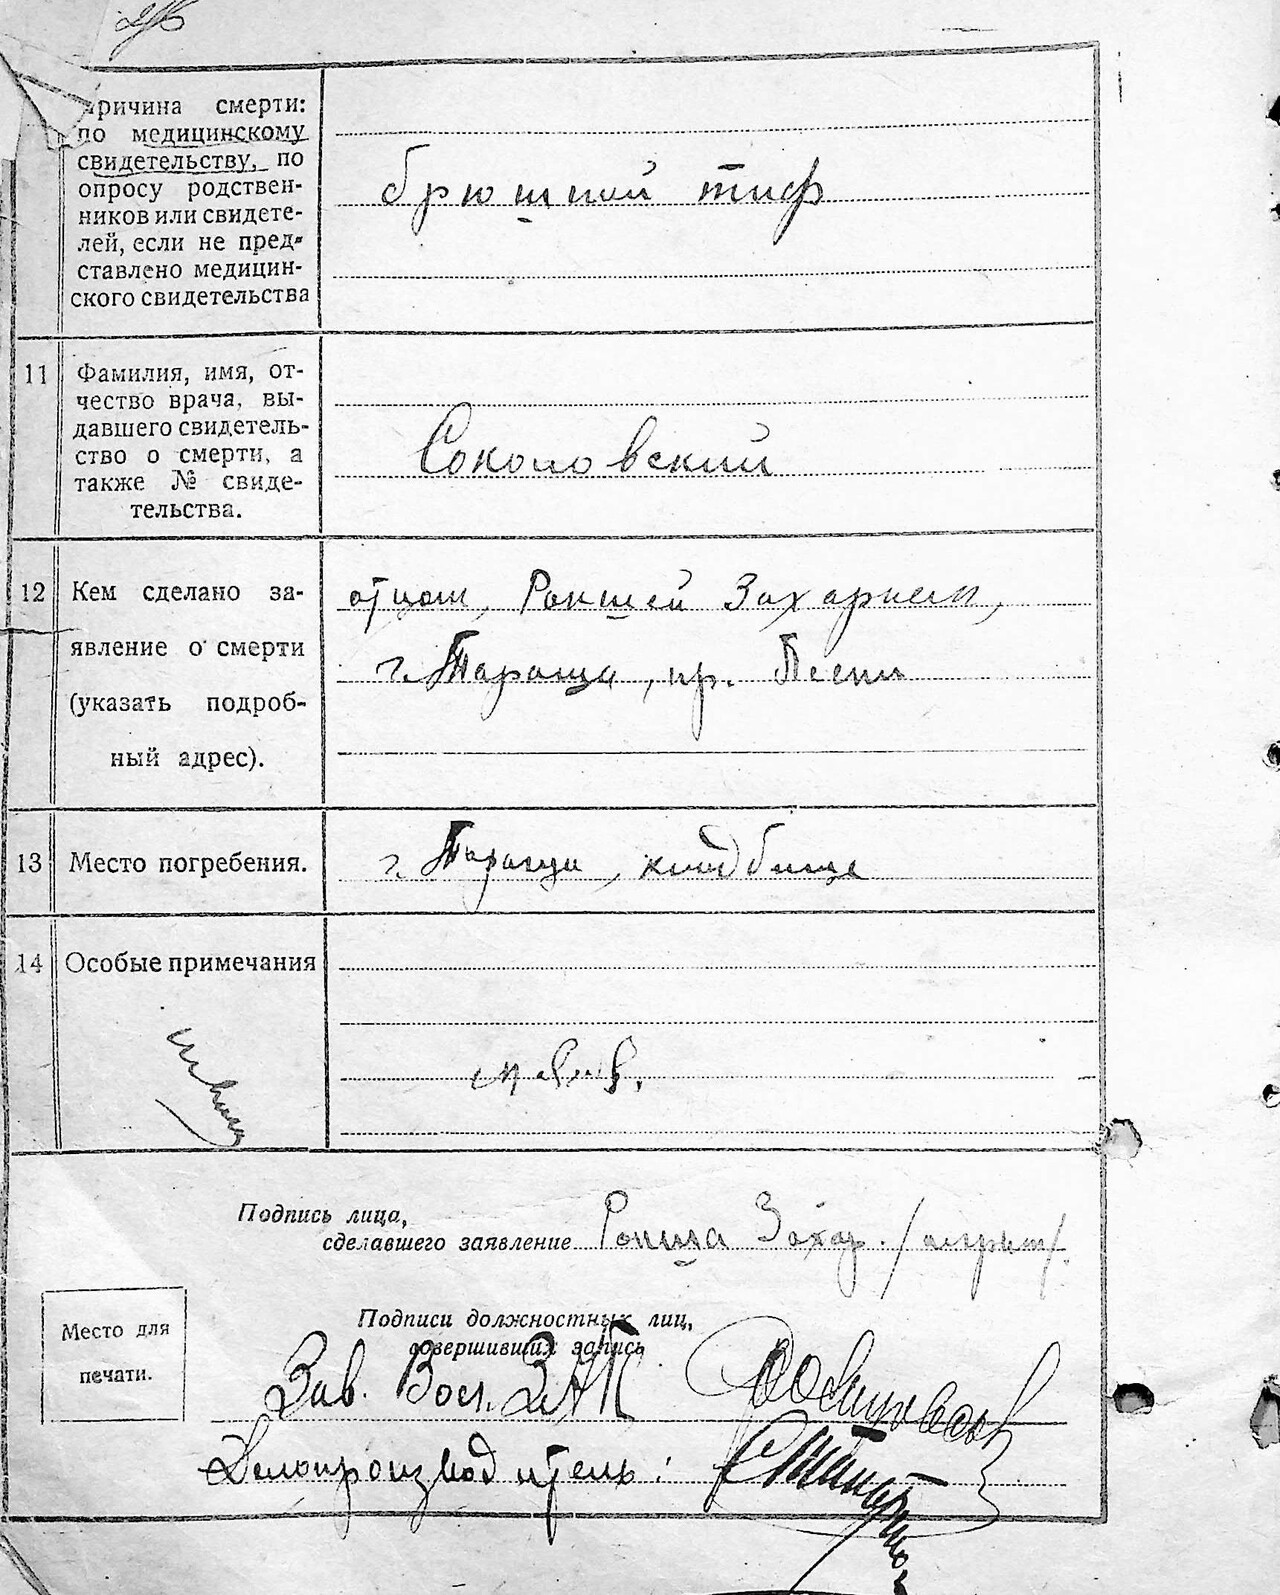 ричина смерти:
по медицинскому
свидетельству, по
опросу родствен-
ников или свидете-
лей, если не пред-
ставлено медицин-
ского свидетельства
брюшной тиф
11
Фамилия, имя, от-
чество врача, вы-
давшего свидетель-
ство о смерти, а
также № свиде-
тельства.
Соколовский
12
Кем сделано за-
явление о смерти
(указать подроб-
ный адрес).
отцом, Рокшей Захарием,
г. Тараща, пр.
13
Место погребения.
г. Тараща, кладбище
14
Особые примечания
Подпись лица,
сделавшего заявление Рокша Захар.
Место для
печати.
Подписи должностных лиц,
совершивших запись
Зав. Вост. ЗАГС
Делопроизводитель: